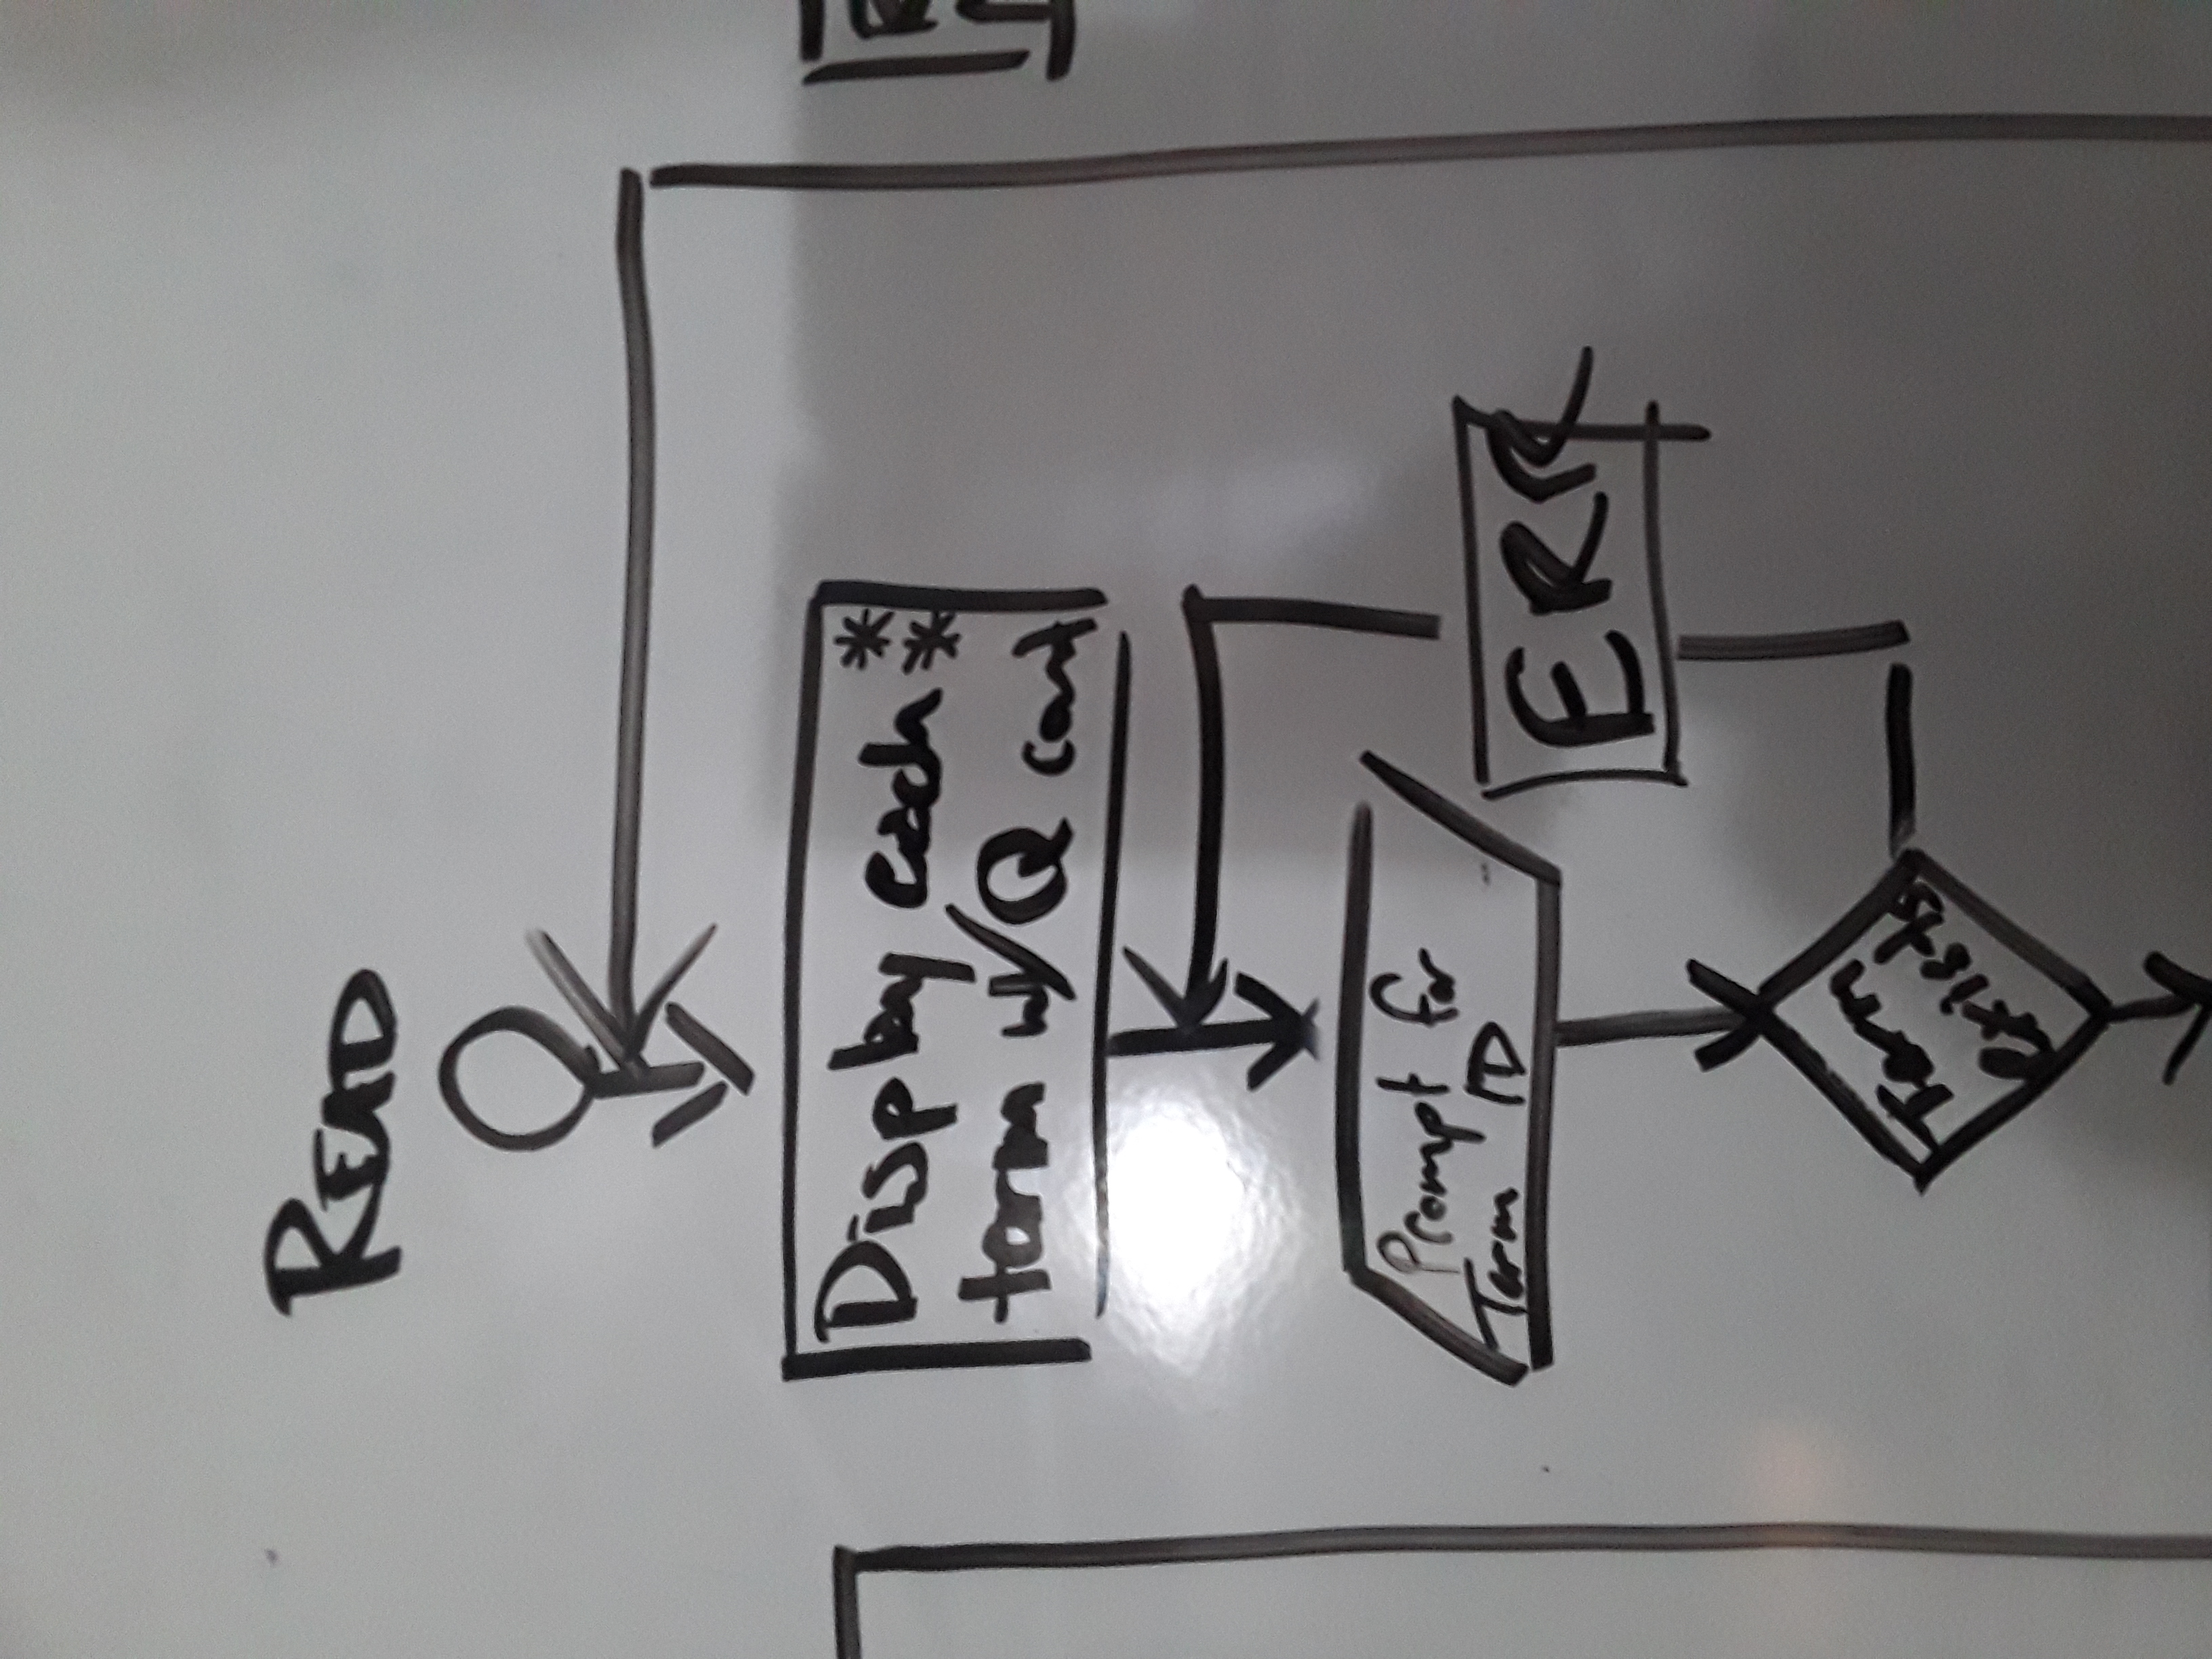 READ
Display each *
*
term w/ Q cant
Prompt for
Term ID
ERR
Term
exists